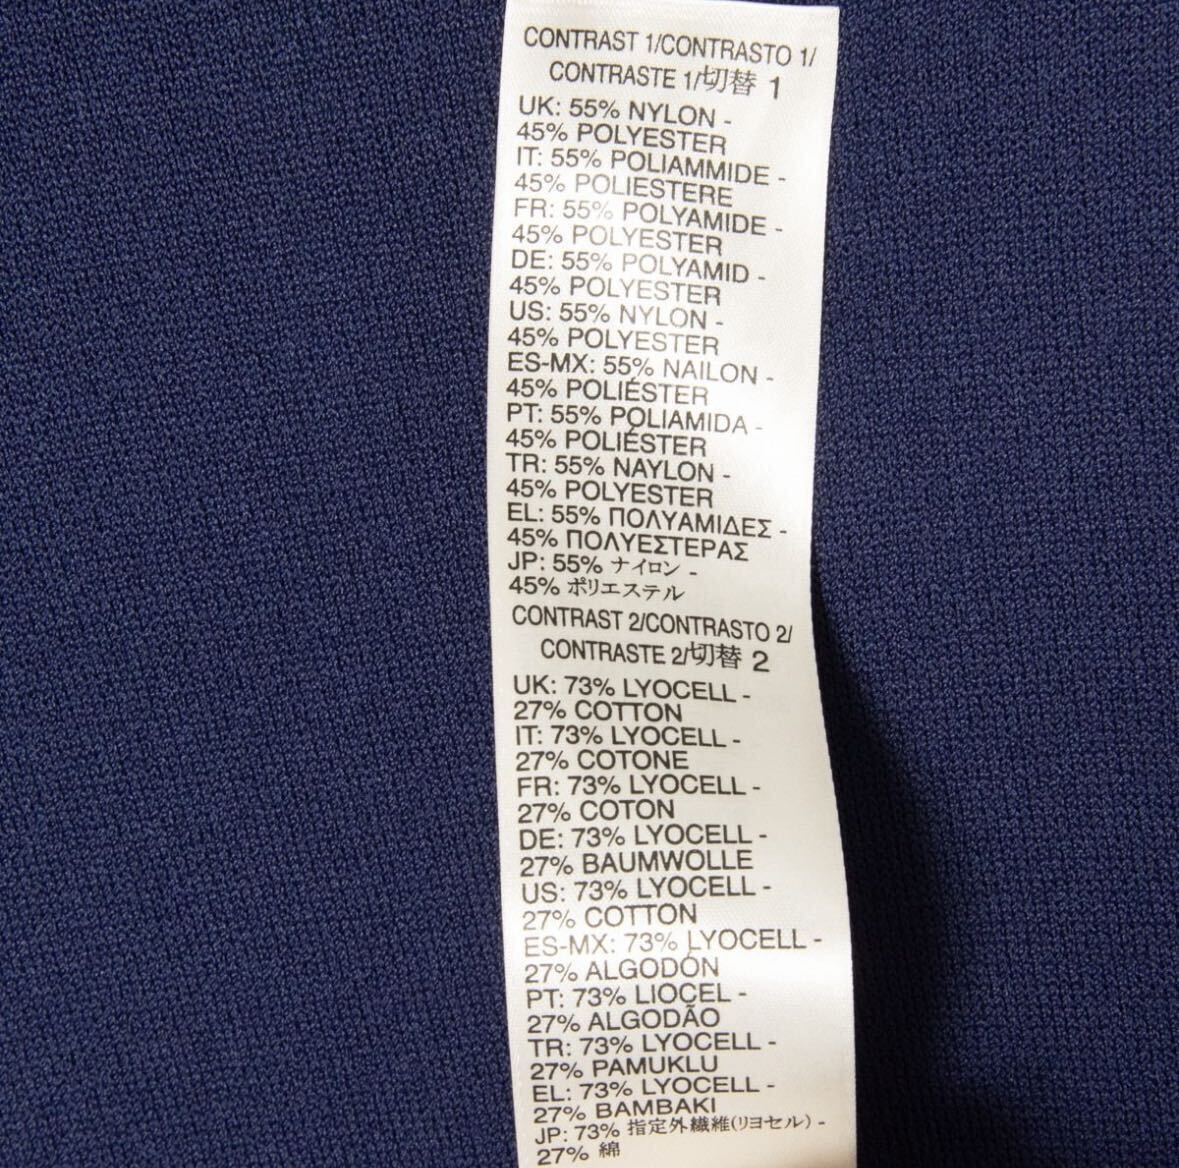 CONTRAST 1/CONTRASTO 1/
CONTRASTE 1/切替 1
UK: 55% NYLON -
45% POLYESTER
IT: 55% POLIAMMIDE -
45% POLIESTERE
FR: 55% POLYAMIDE -
45% POLYESTER
DE: 55% POLYAMID -
45% POLYESTER
US: 55% NYLON -
45% POLYESTER
ES-MX: 55% NAILON -
45% POLIÉSTER
PT: 55% POLIAMIDA -
45% POLIÉSTER
TR: 55% NAYLON -
45% POLYESTER
EL: 55% ΠΟΛΥΑΜΙΔΕΣ -
45% ΠΟΛΥΕΣΤΕΡΑΣ
JP: 55% ナイロン -
45% ポリエステル
CONTRAST 2/CONTRASTO 2/
CONTRASTE 2/切替 2
UK: 73% LYOCELL -
27% COTTON
IT: 73% LYOCELL -
27% COTONE
FR: 73% LYOCELL -
27% COTON
DE: 73% LYOCELL -
27% BAUMWOLLE
US: 73% LYOCELL -
27% COTTON
ES-MX: 73% LYOCELL -
27% ALGODÓN
PT: 73% LIOCEL -
27% ALGODÃO
TR: 73% LYOCELL -
27% PAMUKLU
EL: 73% LYOCELL -
27% BAMBAKI
JP: 73% 指定外繊維(リヨセル) -
27% 綿